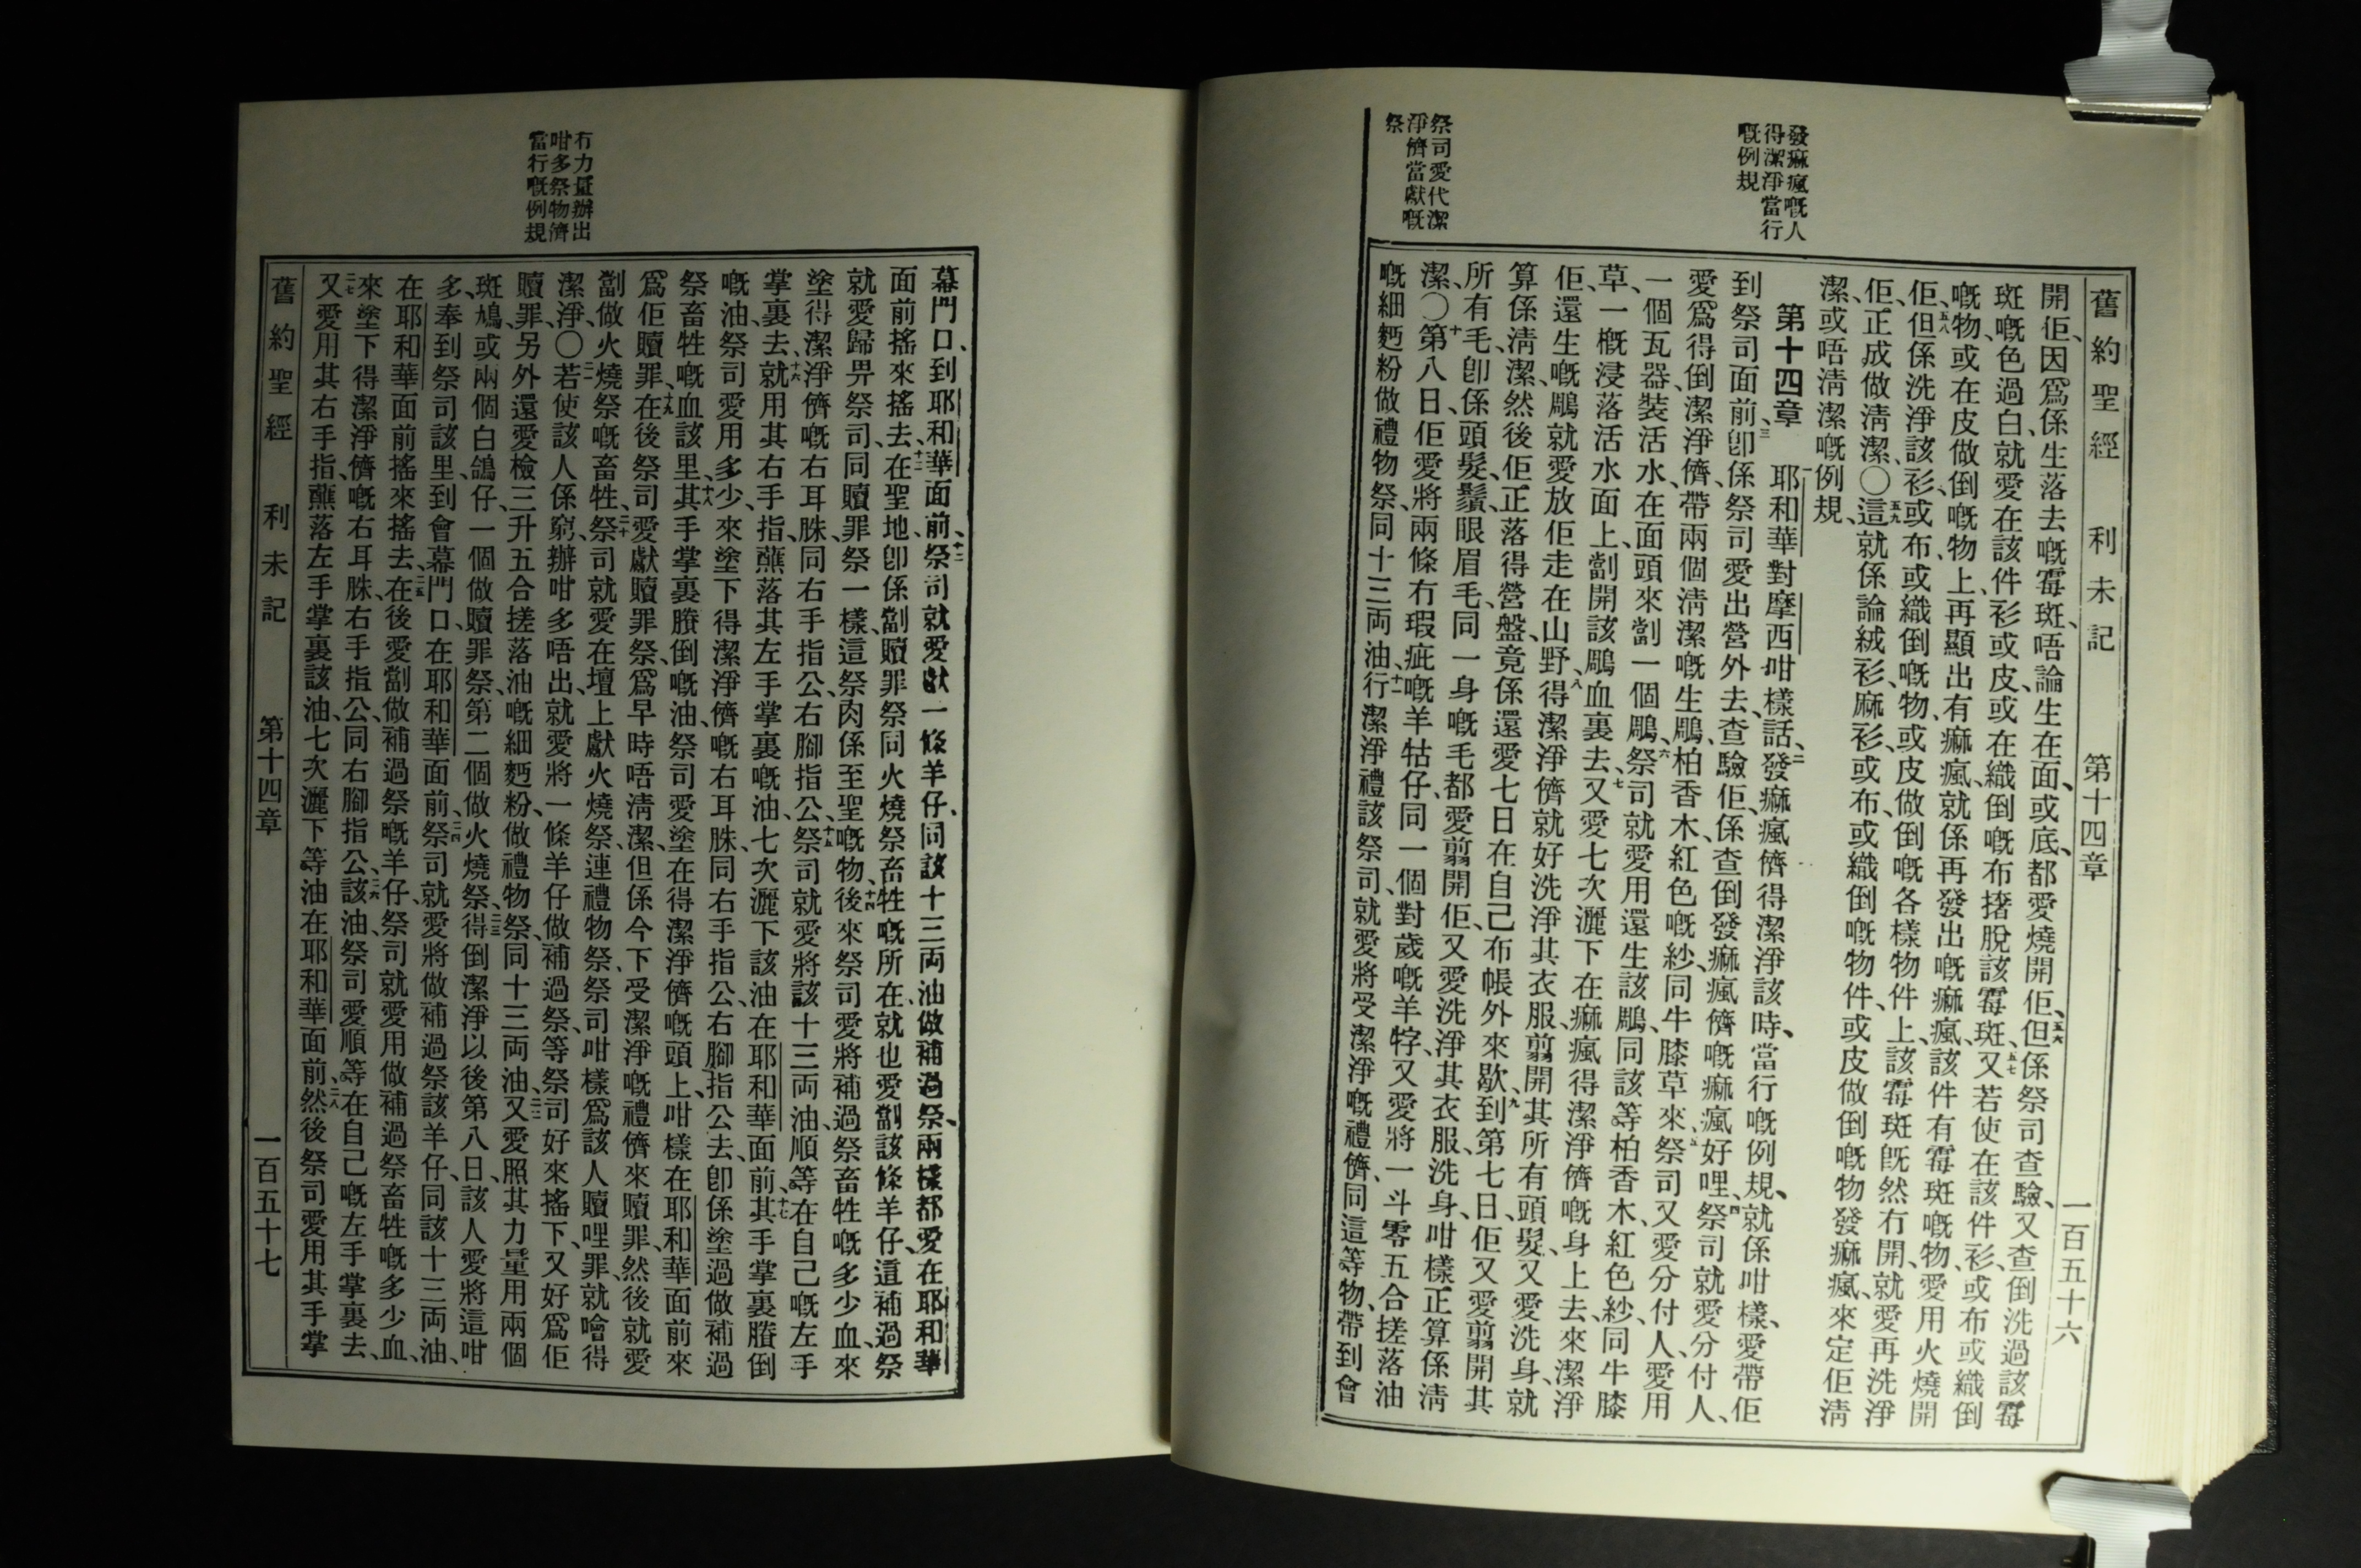 舊約聖經　利未記　第十四章　一百五十六
發痲瘋嘅人
得潔淨當行
嘅例規
祭司愛代潔
淨儕當獻嘅
祭
開佢、因爲係生落去嘅霉斑、唔論生在面、或底、都愛燒開佢、五六但係祭司查驗、又查倒洗過該霉
斑嘅色過白就愛在該件衫或皮、或在織倒嘅布撦脫該霉斑、五七又若使在該件衫、或布或織倒
嘅物、或在皮做倒嘅物上、再顯出有痲瘋、就係再發出嘅痲瘋、該件有霉斑嘅物、愛用火燒開
佢、五八但係洗淨該衫、或布或織倒嘅物、或皮做倒嘅各樣物件上、該霉斑旣然冇開、就愛再洗淨
佢、正成做清潔、〇五九這就係論絨衫、麻衫、或布、或織倒嘅物件、或皮做倒嘅物發痲瘋、來定佢清
潔、或唔清潔嘅例規、
第十四章　一耶和華對摩西咁樣話、二發痲瘋儕得潔淨該時、當行嘅例規、就係咁樣、愛帶佢
到祭司面前、三卽係祭司愛出營外去、查驗佢、係查倒發痲瘋儕嘅痲瘋好哩、四祭司就愛分付人、
愛爲得倒潔淨儕、帶兩個淸潔嘅生鵰、柏香木、紅色嘅紗、同牛膝草來、五祭司又愛分付人、愛用
一個瓦器、裝活水、在面頭來劏一個鵰、六祭司就愛用還生該鵰、同該等柏香木、紅色紗、同牛膝
草、一概浸落活水面上、劏開該鵰血裏去、七又愛七次灑下在痲瘋得潔淨儕嘅身上去、來潔淨
佢、還生嘅鵰、就愛放佢走在山野、八得潔淨儕就好洗淨其衣服、翦開其所有頭髮、又愛洗身、就
算係淸潔、然後佢正落得營盤、竟係還愛七日在自己布帳外來歇、九到第七日、佢又愛翦開其
所有毛、卽係頭髮、鬚、眼眉毛、同一身嘅毛都愛翦開佢、又愛洗淨其衣服、洗身、咁樣正算係淸
潔、〇十第八日、佢愛將兩條冇瑕疵嘅羊牯仔、同一個對歲嘅羊牸、又愛將一斗零五合搓落油
嘅細麪粉做禮物祭、同十三両油、十一行潔淨禮該祭司、就愛將受潔淨嘅禮儕、同這等物、帶到會
冇力量辦出
咁多祭物儕
當行嘅例規
幕門口、到耶和華面前、十二祭司就愛獻一條羊仔、同該十三両油做補過祭、兩樣都愛在耶和華
面前搖來搖去、十三在聖地、卽係劏贖罪祭同火燒祭畜牲嘅所在、就也愛劏該條羊仔、這補過祭
就愛歸畀祭司、同贖罪祭一樣、這祭肉係至聖嘅物、十四後來祭司愛將補過祭畜牲嘅多少血、來
塗得潔淨儕嘅右耳腄、同右手指公、右腳指公、十五祭司就愛將該十三両油、順等在自己嘅左手
掌裏去、十六就用其右手指、蘸落其左手掌裏嘅油、七次灑下該油在耶和華面前、十七其手掌裏賸倒
嘅油、祭司愛用多少、來塗下得潔淨儕嘅右耳腄、同右手指公、右腳指公去、卽係塗過做補過
祭畜牲嘅血該里、十八其手掌裏賸倒嘅油、祭司愛塗在得潔淨儕嘅頭上、咁樣在耶和華面前來
爲佢贖罪、十九在後祭司愛獻贖罪祭、爲早時唔淸潔、但係今下受潔淨嘅禮儕來贖罪、然後就愛
劏做火燒祭嘅畜牲、二十祭司就愛在壇上獻火燒祭、連禮物祭、祭司咁樣爲該人贖哩罪、就噲得
潔淨、〇二一若使該人係窮、辦咁多唔出、就愛將一條羊仔做補過祭、等祭司好來搖下、又好爲佢
贖罪、另外還愛檢三升五合搓落油嘅細麪粉、做禮物祭、同十三両油、二二又愛照其力量用兩個
斑鳩、或兩個白鴿仔、一個做贖罪祭、第二個做火燒祭、二三得倒潔淨以後第八日、該人愛將這咁
多、奉到祭司該里、到會幕門口、在耶和華面前、二四祭司就愛將做補過祭該羊仔、同該十三両油、
在耶和華面前搖來搖去、二五在後愛劏做補過祭嘅羊仔、祭司就愛用做補過祭畜牲嘅多少血、
來塗下得潔淨儕、嘅右耳腄、右手指公、同右腳指公、二六該油、祭司愛順等在自己嘅左手掌裏去、
二七又愛用其右手指、蘸落左手掌裏該油、七次灑下等油在耶和華面前、二八然後祭司愛用其手掌
舊約聖經　利未記　第十四章　一百五十七